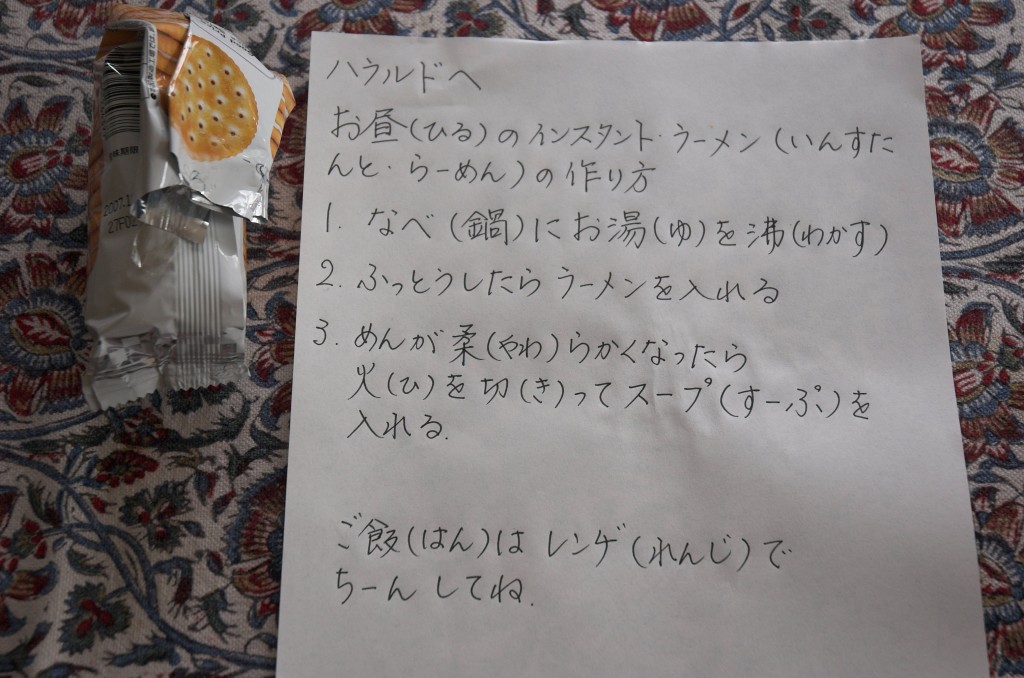 ハウルドへ
お昼(ひる)のインスタント・ラーメン(いんすた
んと・らーめん)の作り方
1. なべ(鍋)にお湯(ゆ)を沸(わかす)
2. ふっとうしたらラーメンを入れる
3. めんが柔(やわ)らかくなったら
火(ひ)を切(き)ってスープ(すーぷ)を
入れる.
ご飯(はん)はレンゲ(れんじ)で
ちーんしてね.
2007.1